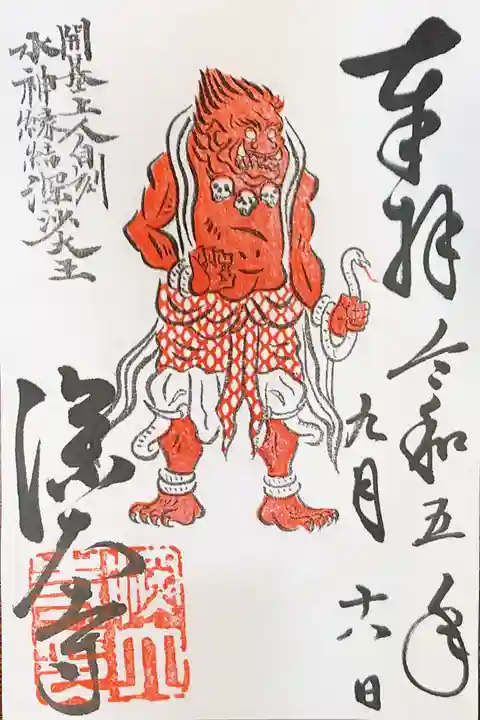 奉拝
令和五年
九月
十六日
開基上人自刻
水神縁結深沙大王
深大寺